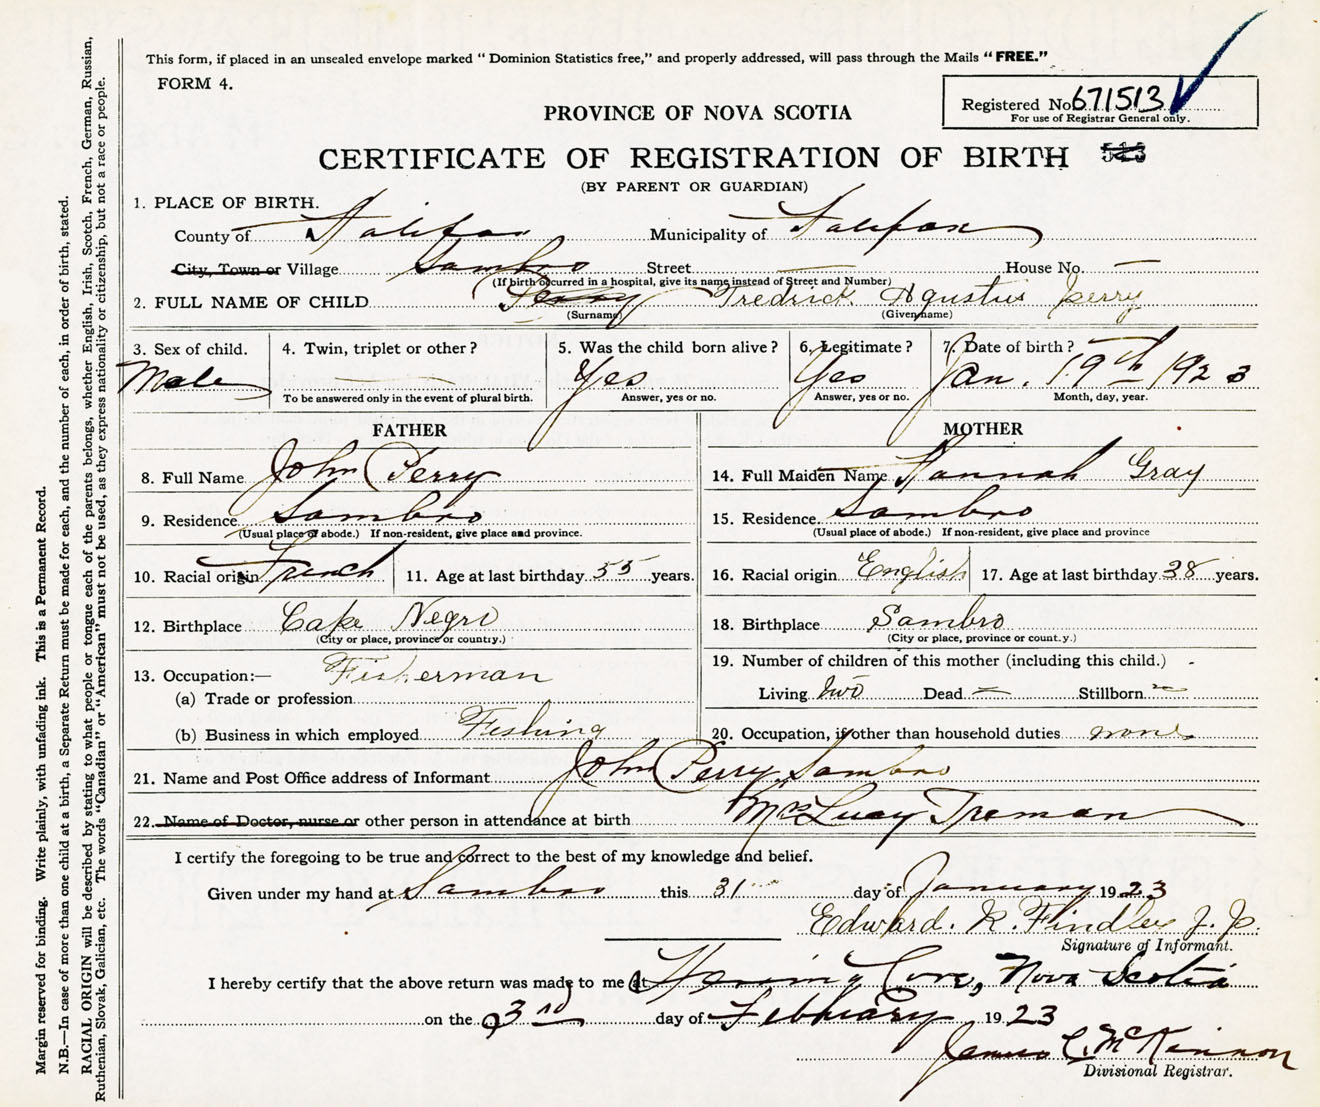 This form, if placed in an unsealed envelope marked "Dominion Statistics free," and properly addressed, will pass through the Mails "FREE."
FORM 4.
Registered No. 671513
For use of Registrar General only.
PROVINCE OF NOVA SCOTIA
CERTIFICATE OF REGISTRATION OF BIRTH
(BY PARENT OR GUARDIAN)
1. PLACE OF BIRTH.
County of Halifax Municipality of Halifax
City, Town or Village Sambro Street — House No. —
(If birth occurred in a hospital, give its name instead of Street and Number)
2. FULL NAME OF CHILD Perry Fredrick Agustus Perry
(Surname) (Given name)
3. Sex of child. 4. Twin, triplet or other? 5. Was the child born alive? 6. Legitimate? 7. Date of birth?
Male — Yes Yes Jan. 19th 1923
To be answered only in the event of plural birth. Answer, yes or no. Answer, yes or no. Month, day, year.
FATHER MOTHER
8. Full Name John Perry 14. Full Maiden Name Hannah Gray
9. Residence Sambro 15. Residence. Sambro
(Usual place of abode.) If non-resident, give place and province. (Usual place of abode.) If non-resident, give place and province
10. Racial origin French 11. Age at last birthday 55 years. 16. Racial origin English 17. Age at last birthday 38 years.
12. Birthplace Cape Negro 18. Birthplace Sambro
(City or place, province or country.) (City or place, province or count.y.)
13. Occupation:— Fisherman 19. Number of children of this mother (including this child.)
(a) Trade or profession Living two Dead — Stillborn —
(b) Business in which employed Fishing 20. Occupation, if other than household duties none
21. Name and Post Office address of Informant John Perry Sambro
22. Name of Doctor, nurse or other person in attendance at birth Mrs Lucy Treman
I certify the foregoing to be true and correct to the best of my knowledge and belief.
Given under my hand at Sambro this 31 day of January 1923
Edward. R. Findley J. P.
Signature of Informant.
I hereby certify that the above return was made to me at Herring Cove, Nova Scotia
on the 3rd day of February 1923
James C. McKinnon
Divisional Registrar.
Margin reserved for binding. Write plainly, with unfading ink. This is a Permanent Record.
N.B.—In case of more than one child at a birth, a Separate Return must be made for each, and the number of each, in order of birth, stated.
RACIAL ORIGIN will be described by stating to what people or tongue each of the parents belongs, whether English, Irish, Scotch, French, German, Russian,
Ruthenian, Slovak, Galician, etc. The words "Canadian" or "American" must not be used, as they express nationality or citizenship, but not a race or people.